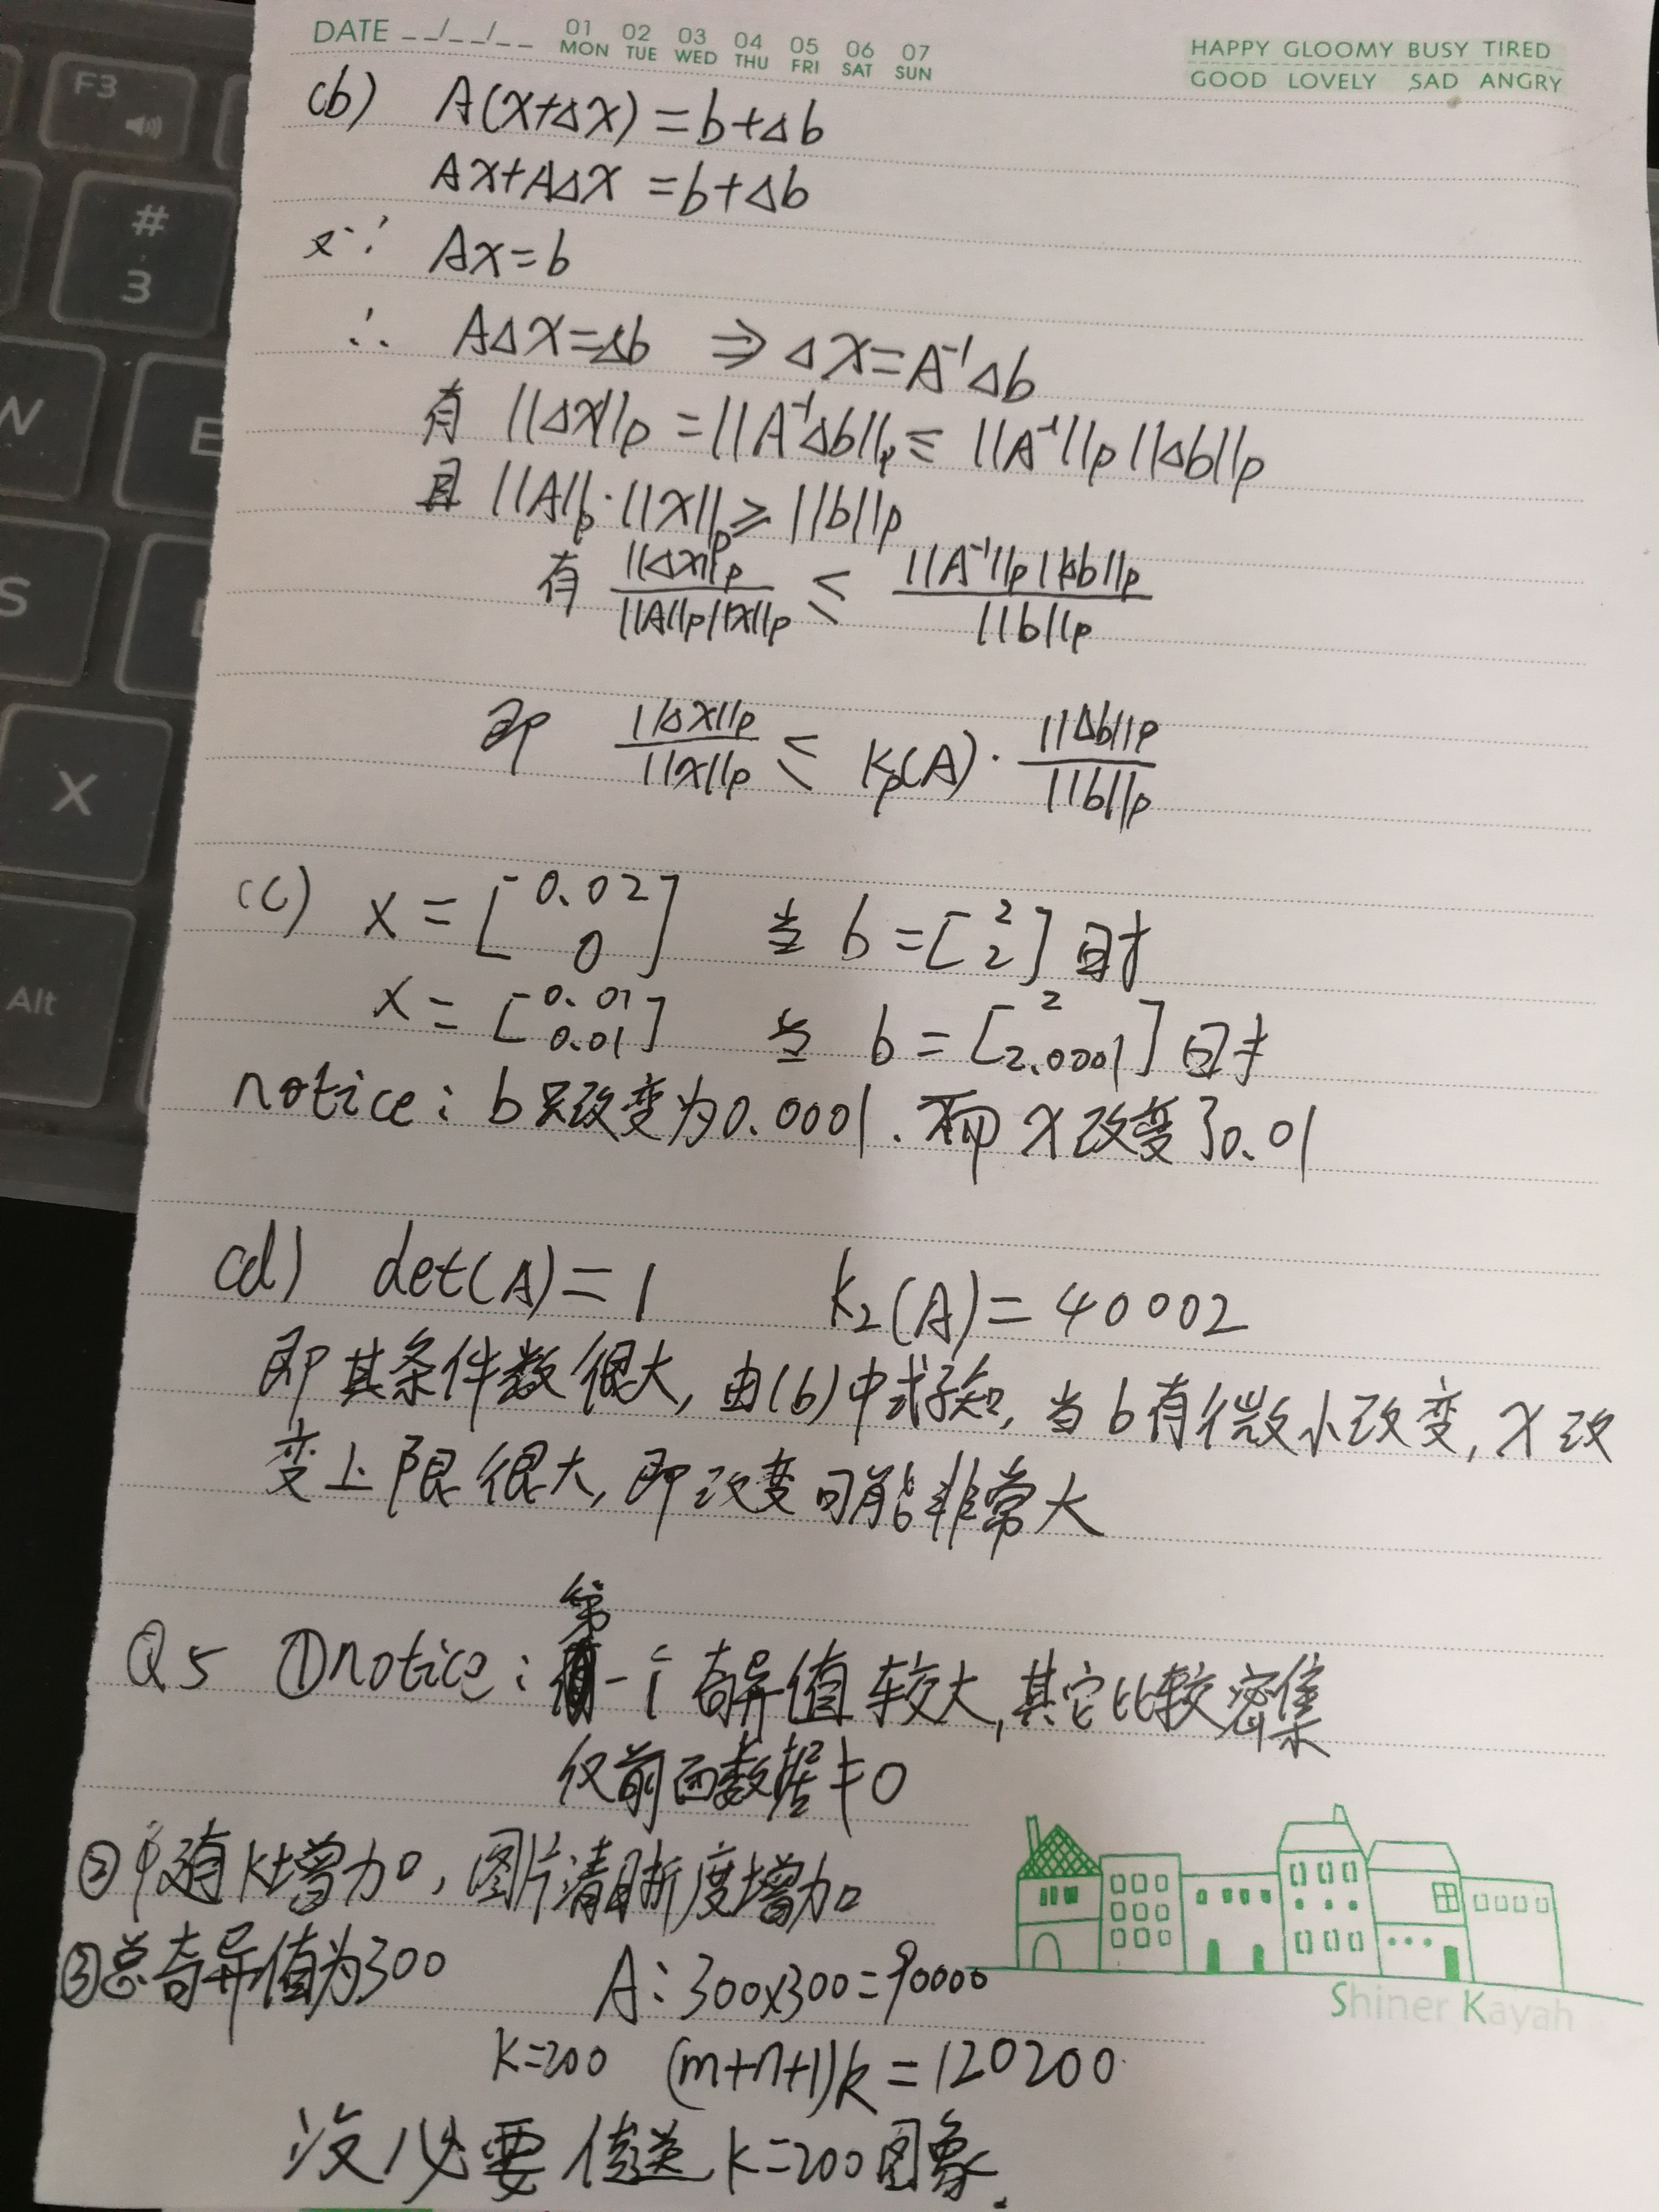 DATE __/__/__ 01 MON 02 TUE 03 WED 04 THU 05 FRI 06 SAT 07 SUN
HAPPY GLOOMY BUSY TIRED
GOOD LOVELY SAD ANGRY
(b) A(x+Δx)=b+Δb
Ax+AΔx=b+Δb
又∵ Ax=b
∴ AΔx=Δb ⇒ Δx=A⁻¹Δb
有 ||Δx||p = ||A⁻¹Δb||p ≤ ||A⁻¹||p ||Δb||p
且 ||A||p·||x||p ≥ ||b||p
有 ||Δx||p / ||A||p||x||p ≤ ||A⁻¹||p||Δb||p / ||b||p
即 ||Δx||p / ||x||p ≤ Kp(A)· ||Δb||p / ||b||p
(c) x=[0.02 0] 当 b=[2 2]时
x=[0.01 0.01] 当 b=[2 2.0001]时
notice: b只改变为0.0001. 而 x改变了0.01
(d) det(A)=1 k₂(A)=40002
即其条件数很大, 由(b)中式子知, 当b有微小改变, x改
变上限很大, 即改变可能非常大
Q5 ①notice: 第一个奇异值较大,其它比较密集
仅前面数据≠0
②随k增加, 图片清晰度增加
③总奇异值为300 A: 300×300=90000
k=200 (m+n+1)k=120200
没必要传送k=200图象.
Shiner Kayah
F3
#
3
W
E
S
X
Alt